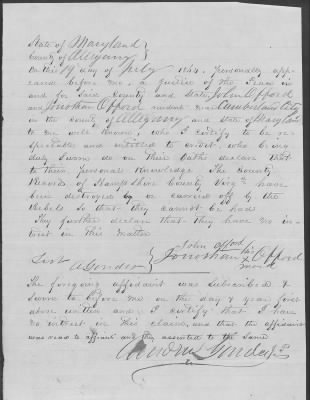 State of Maryland
County of Allegany
On this 19 day of July 1864. Personally app
eared before me, a Justice of the Peace in
and for Said County and State, John Offord
and Jonathan Offord resident near Cumberland City
in the County of Allegany and State of Maryland
to me well known, who I certify to be re
spectable and entitled to credit, who being
duly Sworn do on their Oaths declare that
to their Personal Knowledge The County
Records of Hampshire County Virga have
been destroyed or carried off by the
Rebels So that they cannot be had
They further declare that they have no in
trest in this matter
John Offord
Test
A Gonder
Jonathan his X mark Offord
The foregoing affidavit was Subscribed &
Sworn to before me on the day & year first
above written and I Certify that I have
no intrest in this claim, and that the affidavit
was read to affiant and they assented to the Same
Andrew Gonder JP